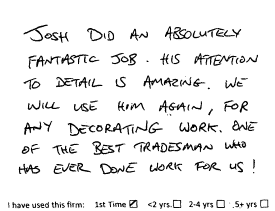 JOSH DID AN ABSOLUTELY
FANTASTIC JOB. HIS ATTENTION
TO DETAIL IS AMAZING. WE
WILL USE HIM AGAIN, FOR
ANY DECORATING WORK. ONE
OF THE BEST TRADESMAN WHO
HAS EVER DONE WORK FOR US!
I have used this firm: 1st Time ☑ <2 yrs. ☐ 2-4 yrs ☐ .5+ yrs ☐